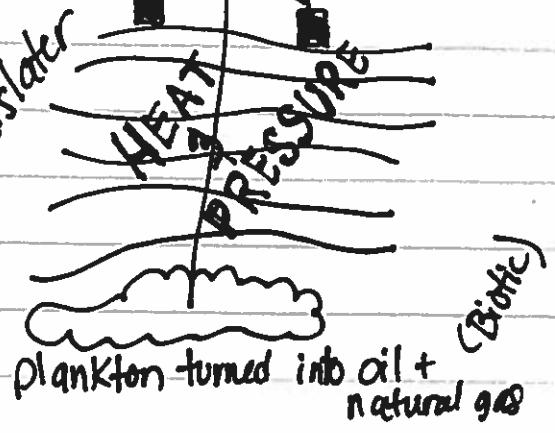 HEAT
&
PRESSURE
(Biotic)
plankton turned into oil +
natural gas